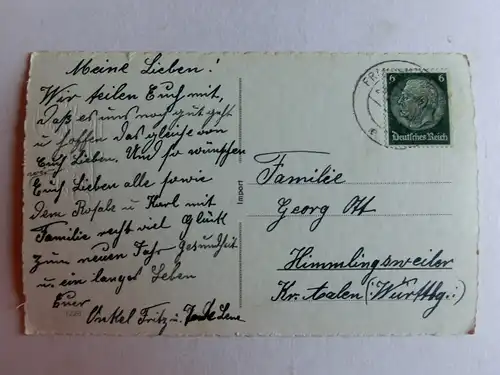 Meine Lieben!
Wir teilen Euch mit,
daß es uns noch gut geht
u hoffen das gleiche von
Euch Lieben. Und so wünschen
wir
Euch Lieben alle sowie
dem Rosale u Karl mit
Familie recht viel Glück
zum neuen Jahr Gesundheit
u ein langes Leben
Euer
Onkel Fritz u. Lene
Import
6 6
Deutsches Reich
Familie
Georg Ott
Himmlingsweiler
Kr. Aalen (Württbg.)